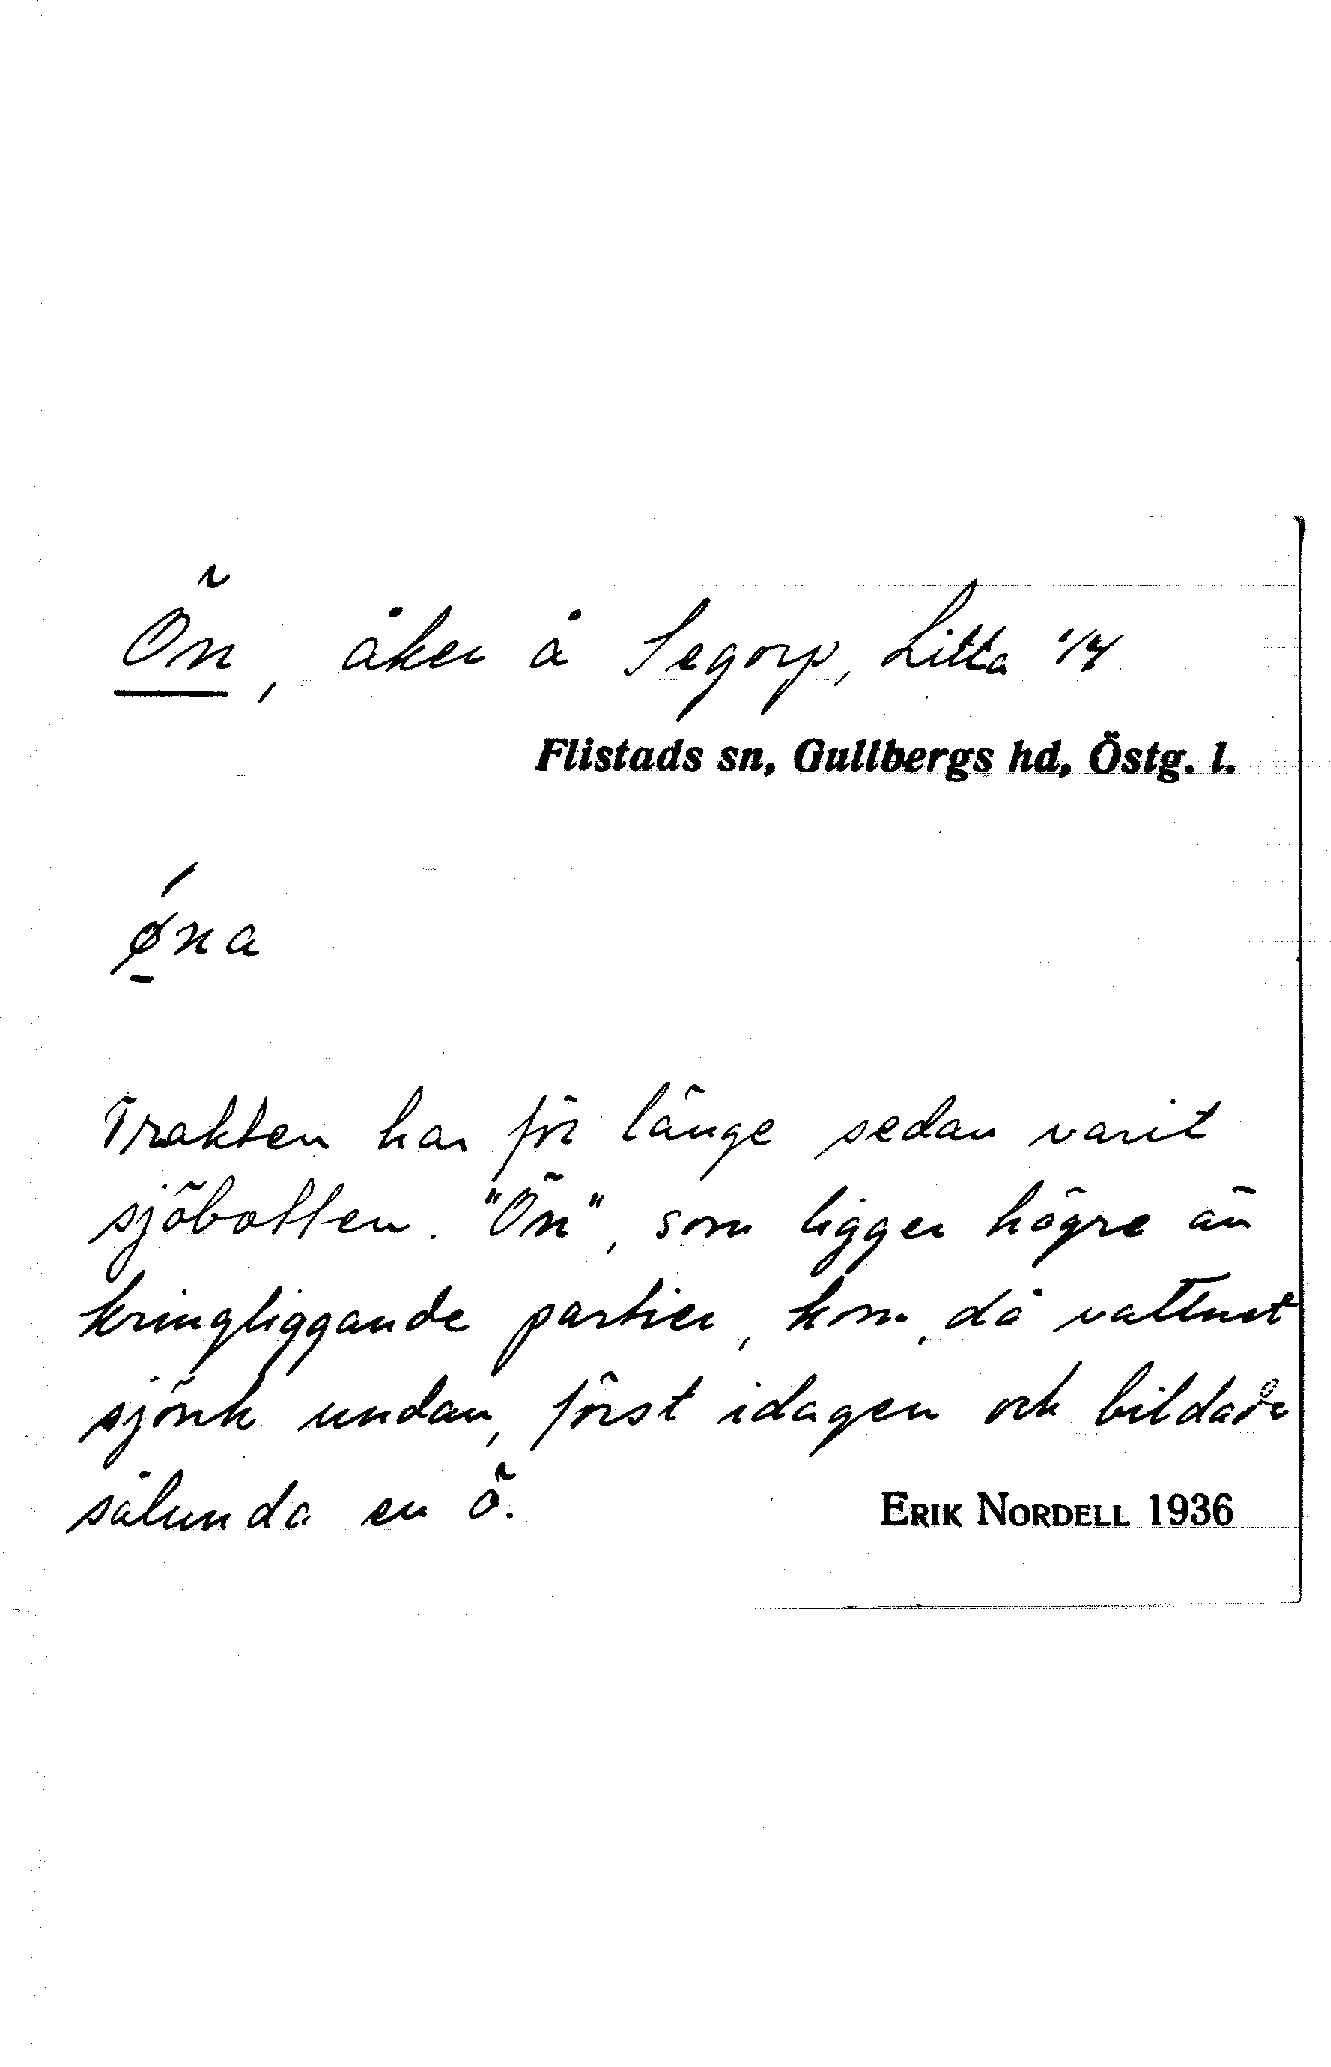 Ön, åker å Segorp, Litta 1/4
Flistads sn, Gullbergs hd, Östg. l.
ǿna
Trakten har för länge sedan varit
sjöbotten. "Ön", som ligger högre än
kringliggande partier, kom, då vattnet
sjönk undan, först idagen och bildade
sålunda en ö.
ERIK NORDELL 1936